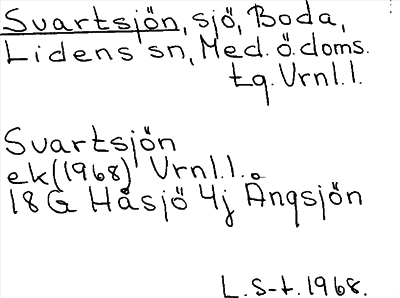 Svartsjön, sjö, Boda,
Lidens sn, Med. ö. doms.
tg. Vrnl.l.
Svartsjön
ek (1968) Vrnl.l.
18G Håsjö 4j Ångsjön
L.S-t. 1968.